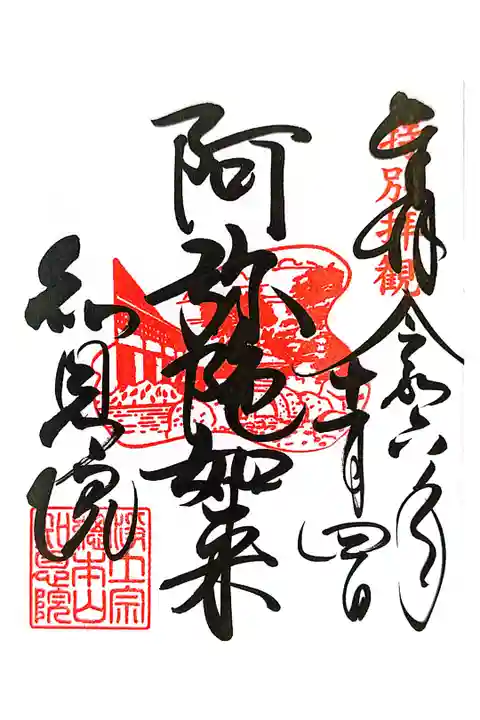 奉拝 令和六年
十一月四日
特別拝観
阿弥陀如来
知恩院
浄土宗
総本山
知恩院